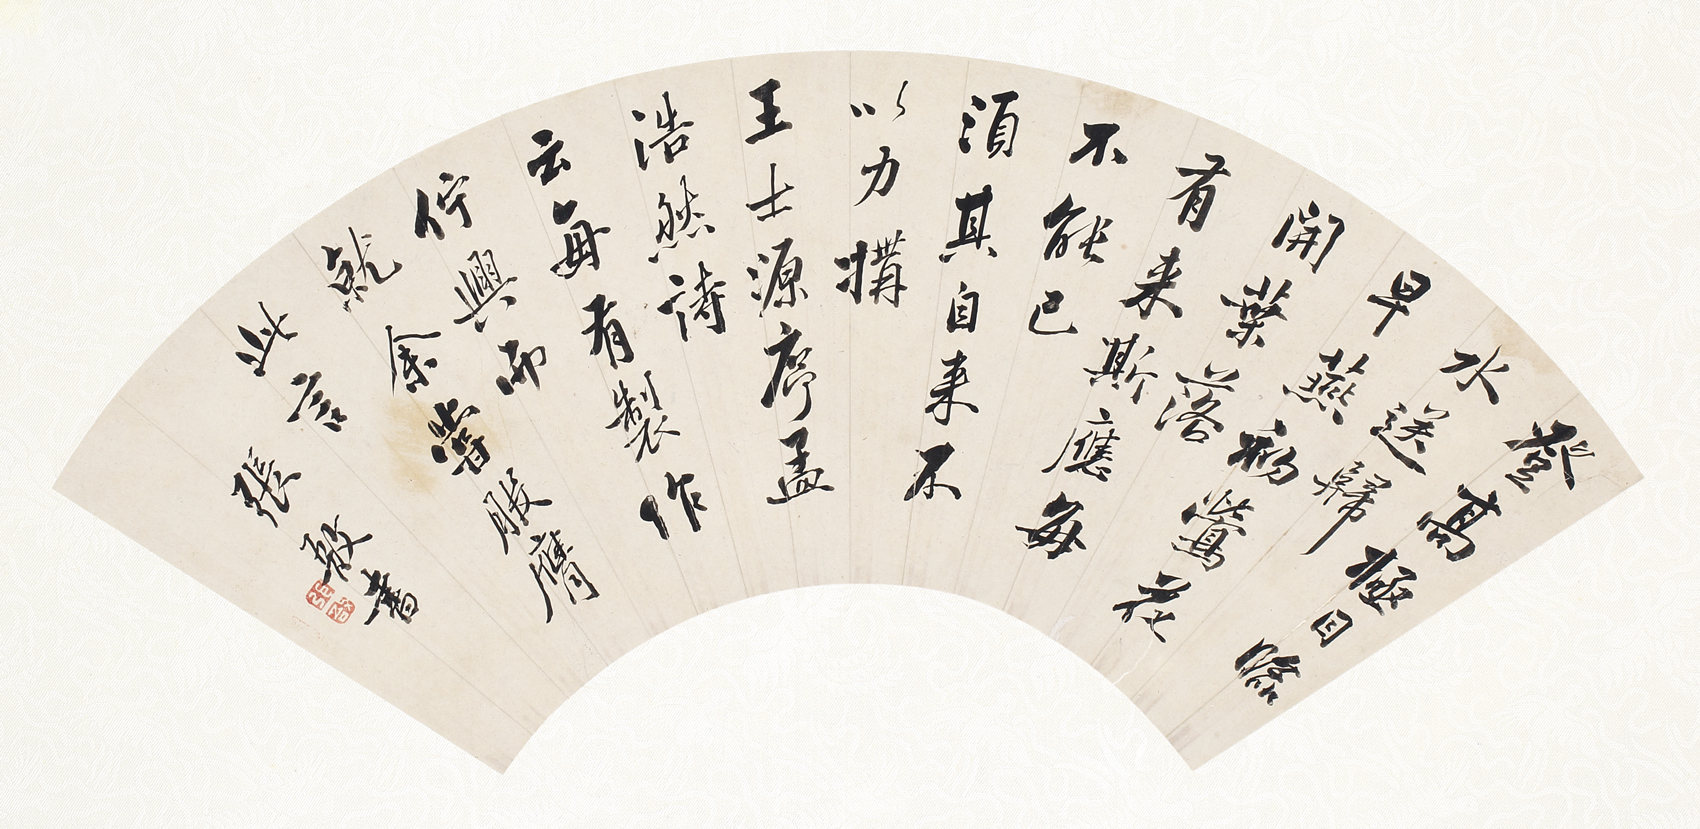 登高極目臨
水送歸
早燕初鶯花
開葉落
有来斯應每
不能已
須其自来不
以力構
王士源序孟
浩然詩
云每有製作
佇興而
就余嘗服膺
此言
張書